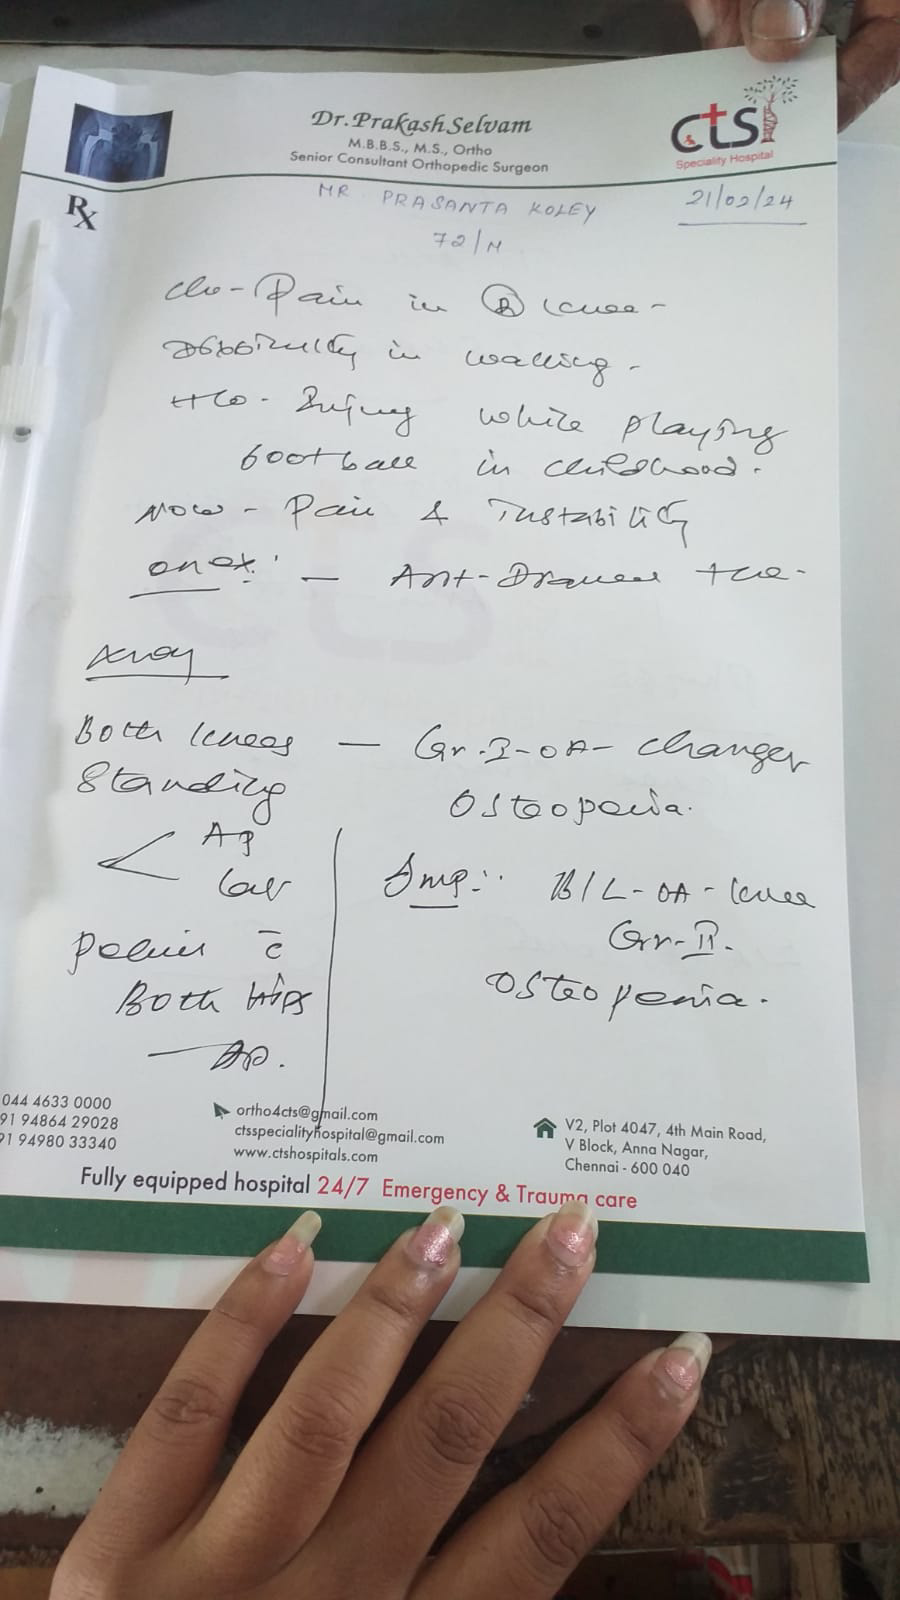 Dr.Prakash Selvam
M.B.B.S., M.S., Ortho
Senior Consultant Orthopedic Surgeon
cts
Speciality Hospital
Rx
MR. PRASANTA KOLEY
21/02/24
72/M
c/o - Pain in (R) knee -
difficulty in walking.
H/o - Injury while playing
football in childhood.
Now - Pain & Instability
On ex: - Ant-Drawer +ve-
Xray
Both knees — Gr-I-OA- changes
Standing Osteopenia.
< AP
Lat
Pelvis c̄
Both hips
— AP.
Imp:- B/L-OA-knee
Gr-II.
Osteopenia.
044 4633 0000
91 94864 29028
91 94980 33340
ortho4cts@gmail.com
ctsspecialityhospital@gmail.com
www.ctshospitals.com
V2, Plot 4047, 4th Main Road,
V Block, Anna Nagar,
Chennai - 600 040
Fully equipped hospital 24/7 Emergency & Trauma care